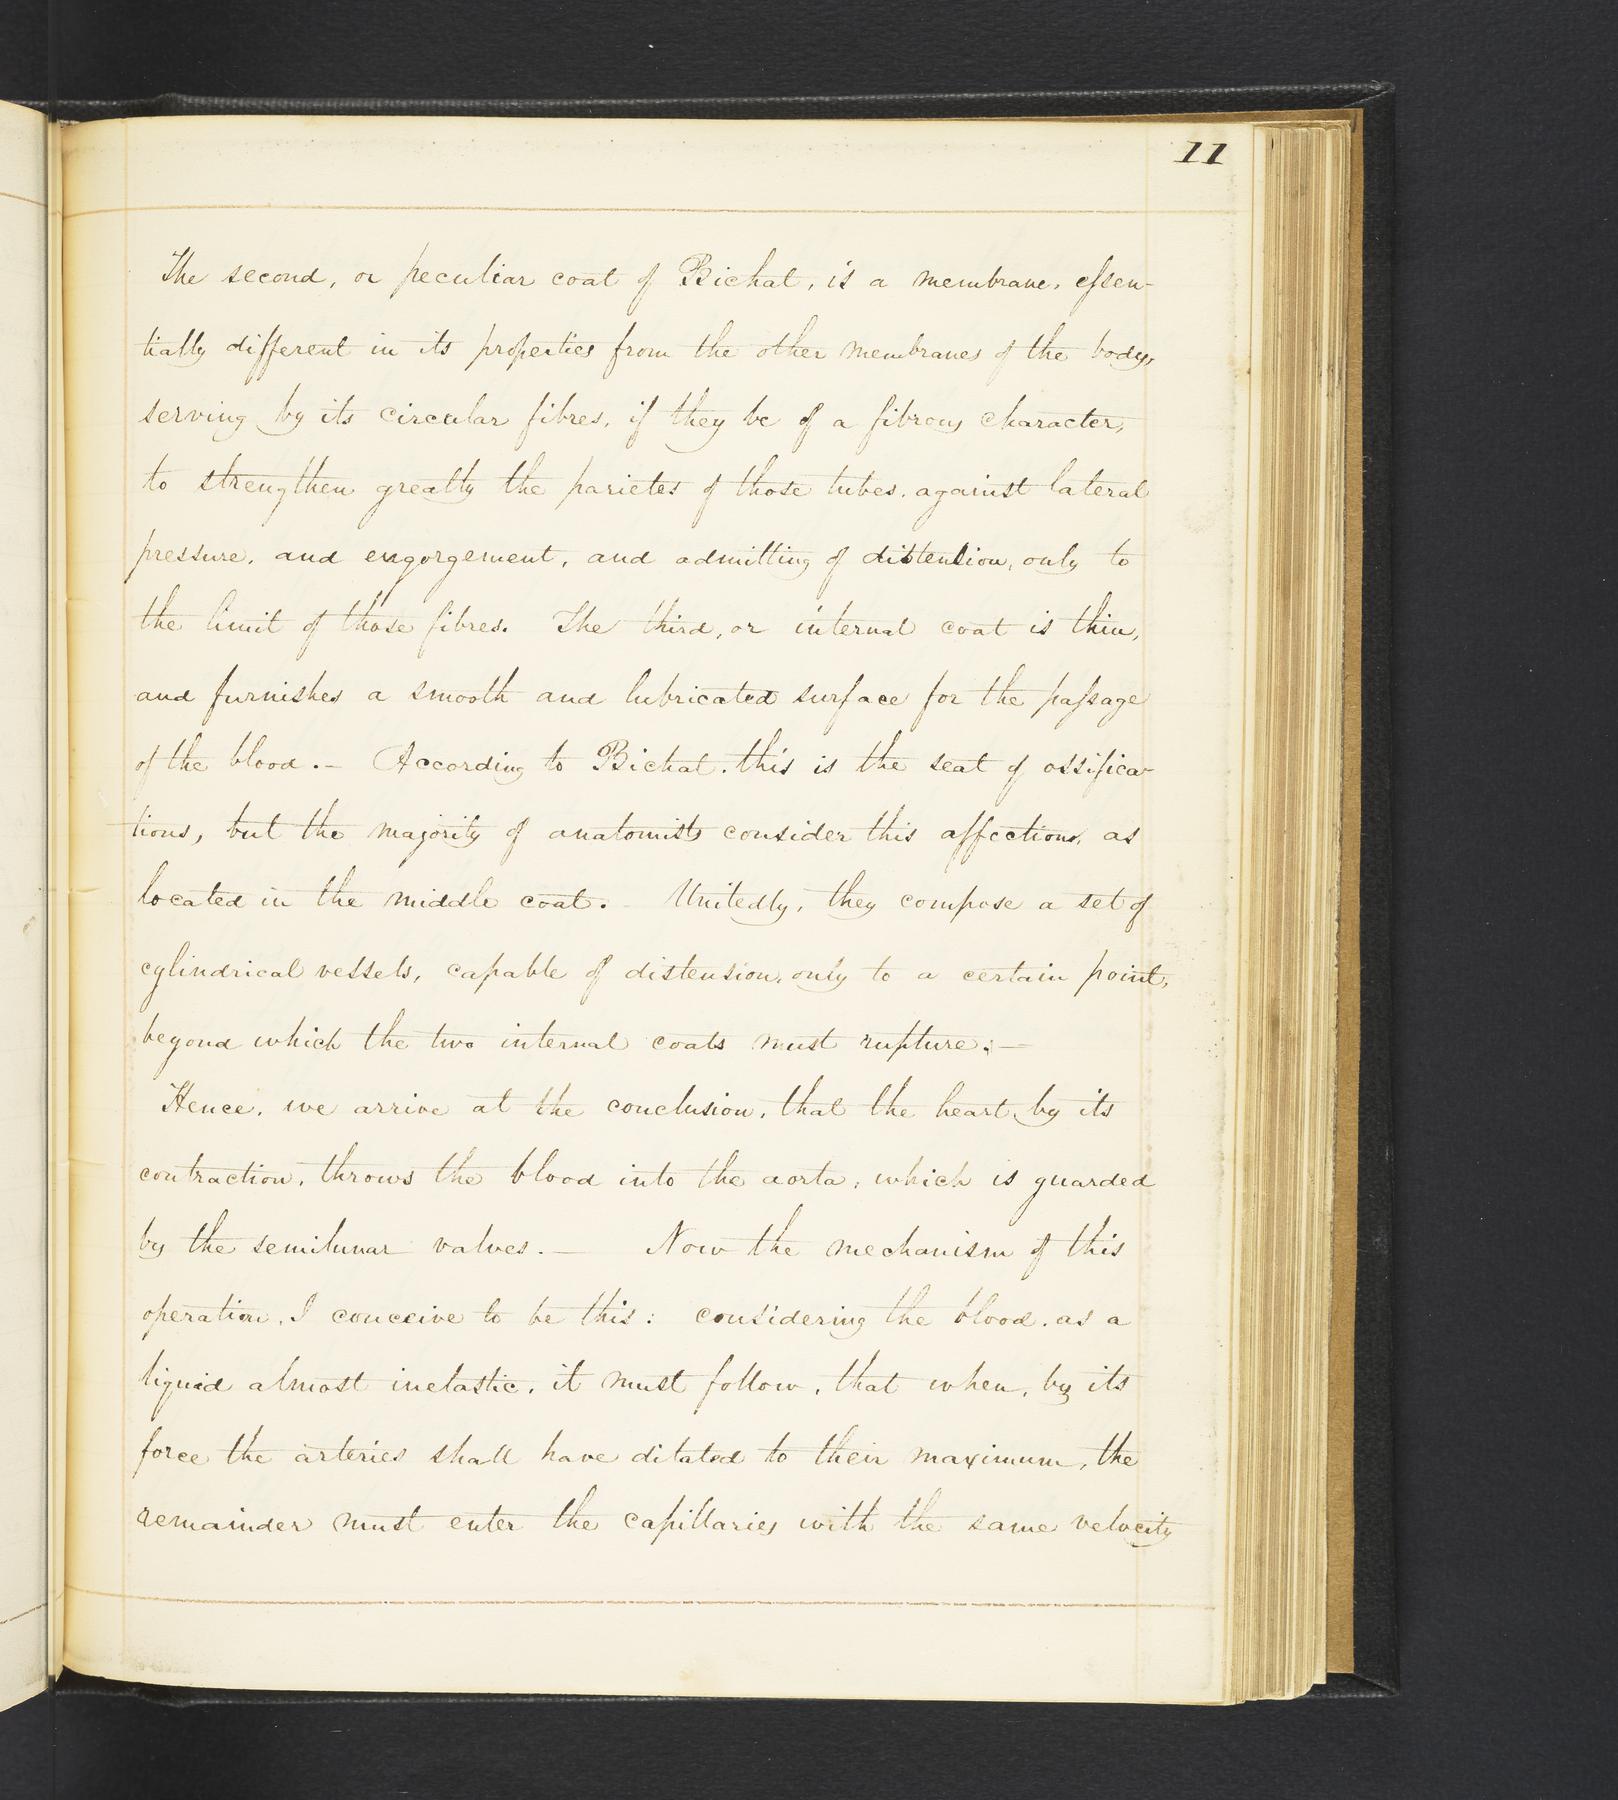 11
The second, or peculiar coat of Bichat, is a membrane, essen-
tially different in its properties from the other membranes of the body,
serving by its circular fibres, if they be of a fibrous character,
to strengthen greatly the parietes of those tubes, against lateral
pressure, and engorgement, and admitting of distension, only to
the limit of those fibres. The third, or internal coat is thin,
and furnishes a smooth and lubricated surface for the passage
of the blood.— According to Bichat, this is the seat of ossifica-
tions, but the majority of anatomists consider this affections, as
located in the middle coat.— Unitedly, they compose a set of
cylindrical vessels, capable of distension, only to a certain point,
beyond which the two internal coats must rupture.—
Hence, we arrive at the conclusion, that the heart, by its
contraction, throws the blood into the aorta, which is guarded
by the semilunar valves.— Now the mechanism of this
operation, I conceive to be this: considering the blood, as a
liquid almost inelastic, it must follow, that when, by its
force the arteries shall have dilated to their maximum, the
remainder must enter the capillaries with the same velocity